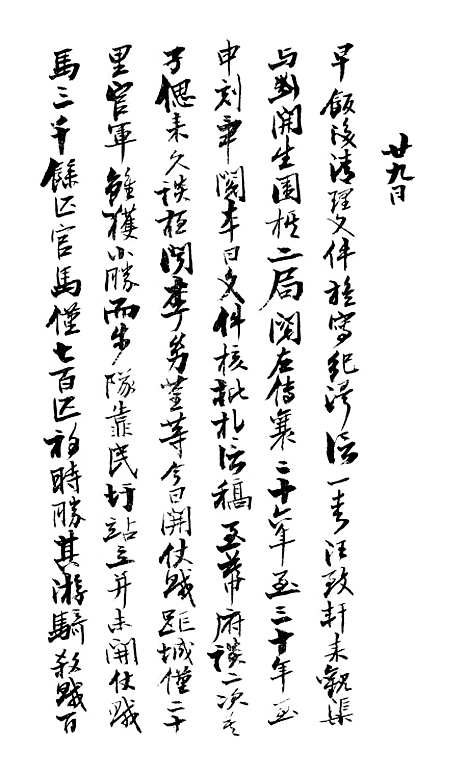 廿九日
早飯後清理文件旋寫紀澤信一封汪致軒來觀渠
与劉開生圍棋二局閱左傳襄二十六年至三十年止
申刻畢閱本日文件核批札信稿至幕府談二次
子偲來久談極閱李幼荃等今日開仗賊距城僅二十
里官軍雖獲小勝而步隊靠民圩站立并未開仗賊
馬三千餘匹官馬僅七百匹初時勝其游騎殺賊百